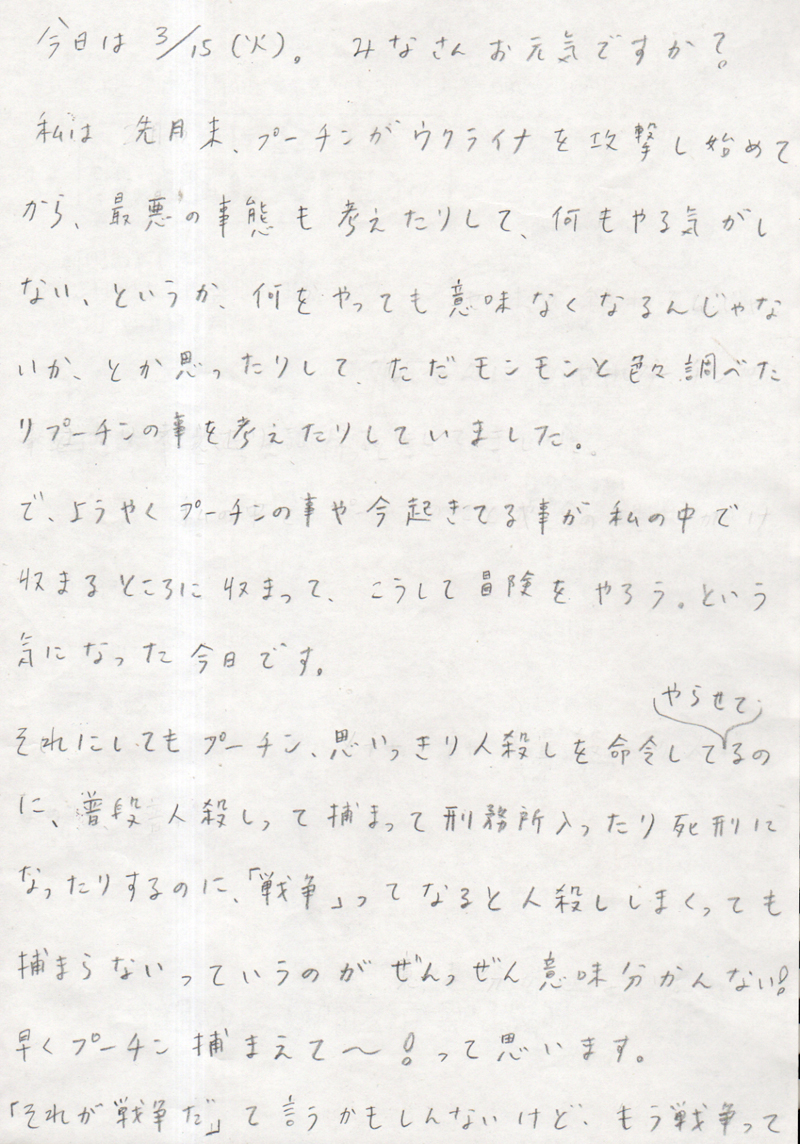 今日は 3/15(火)。 みなさんお元気ですか?
私は 先月末、プーチンがウクライナを攻撃し始めて
から、最悪の事態も考えたりして、何もやる気がし
ない、というか、何をやっても意味なくなるんじゃな
いか、とか思ったりして、ただモンモンと色々調べた
りプーチンの事を考えたりしていました。
で、ようやくプーチンの事や今起きてる事が私の中で
収まるところに収まって、こうして冒険をやろう。という
気になった今日です。
やらせて
それにしてもプーチン、思いっきり人殺しを命令してるの
に、普段人殺しって捕まって刑務所入ったり死刑に
なったりするのに、「戦争」ってなると人殺ししまくっても
捕まらないっていうのがぜんっぜん意味分かんない!
早くプーチン捕まえて〜!って思います。
「それが戦争だ」て言うかもしんないけど、もう戦争って